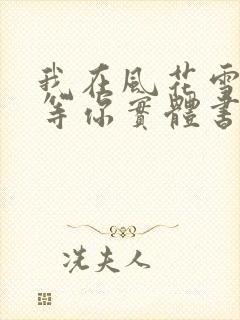 我在風花雪
等你實體書
冼夫人